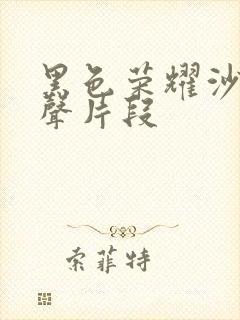 黑色荣耀沙
聲片段
索菲特